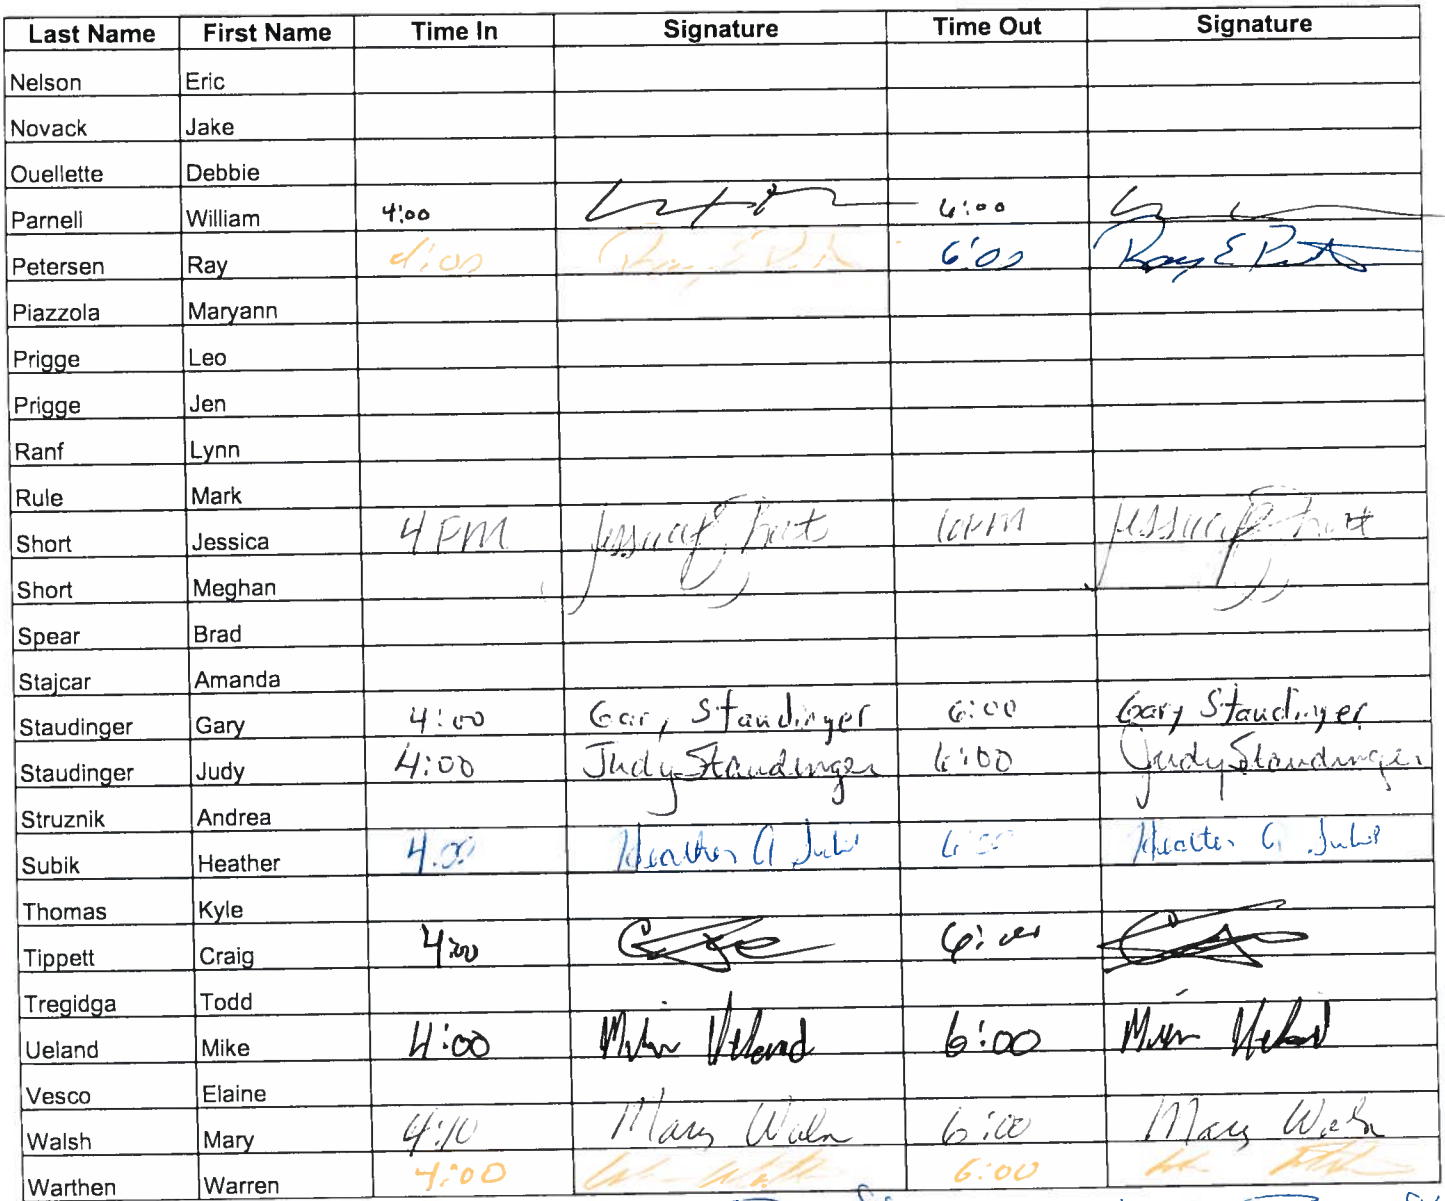 Last Name First Name Time In Signature Time Out Signature
Nelson Eric
Novack Jake
Ouellette Debbie
Parnell William 4:00 6:00
Petersen Ray 4:00 Ray E 6:00 Ray E
Piazzola Maryann
Prigge Leo
Prigge Jen
Ranf Lynn
Rule Mark
Short Jessica 4 PM Jessica Short 6PM Jessica Short
Short Meghan
Spear Brad
Stajcar Amanda
Staudinger Gary 4:00 Gary Staudinger 6:00 Gary Staudinger
Staudinger Judy 4:00 Judy Staudinger 6:00 Judy Staudinger
Struznik Andrea
Subik Heather 4:00 Heather A Subik 6:00 Heather A Subik
Thomas Kyle
Tippett Craig 4:00 6:00
Tregidga Todd
Ueland Mike 4:00 Mike Ueland 6:00 Mike Ueland
Vesco Elaine
Walsh Mary 4:10 Mary Walsh 6:00 Mary Walsh
Warthen Warren 4:00 6:00